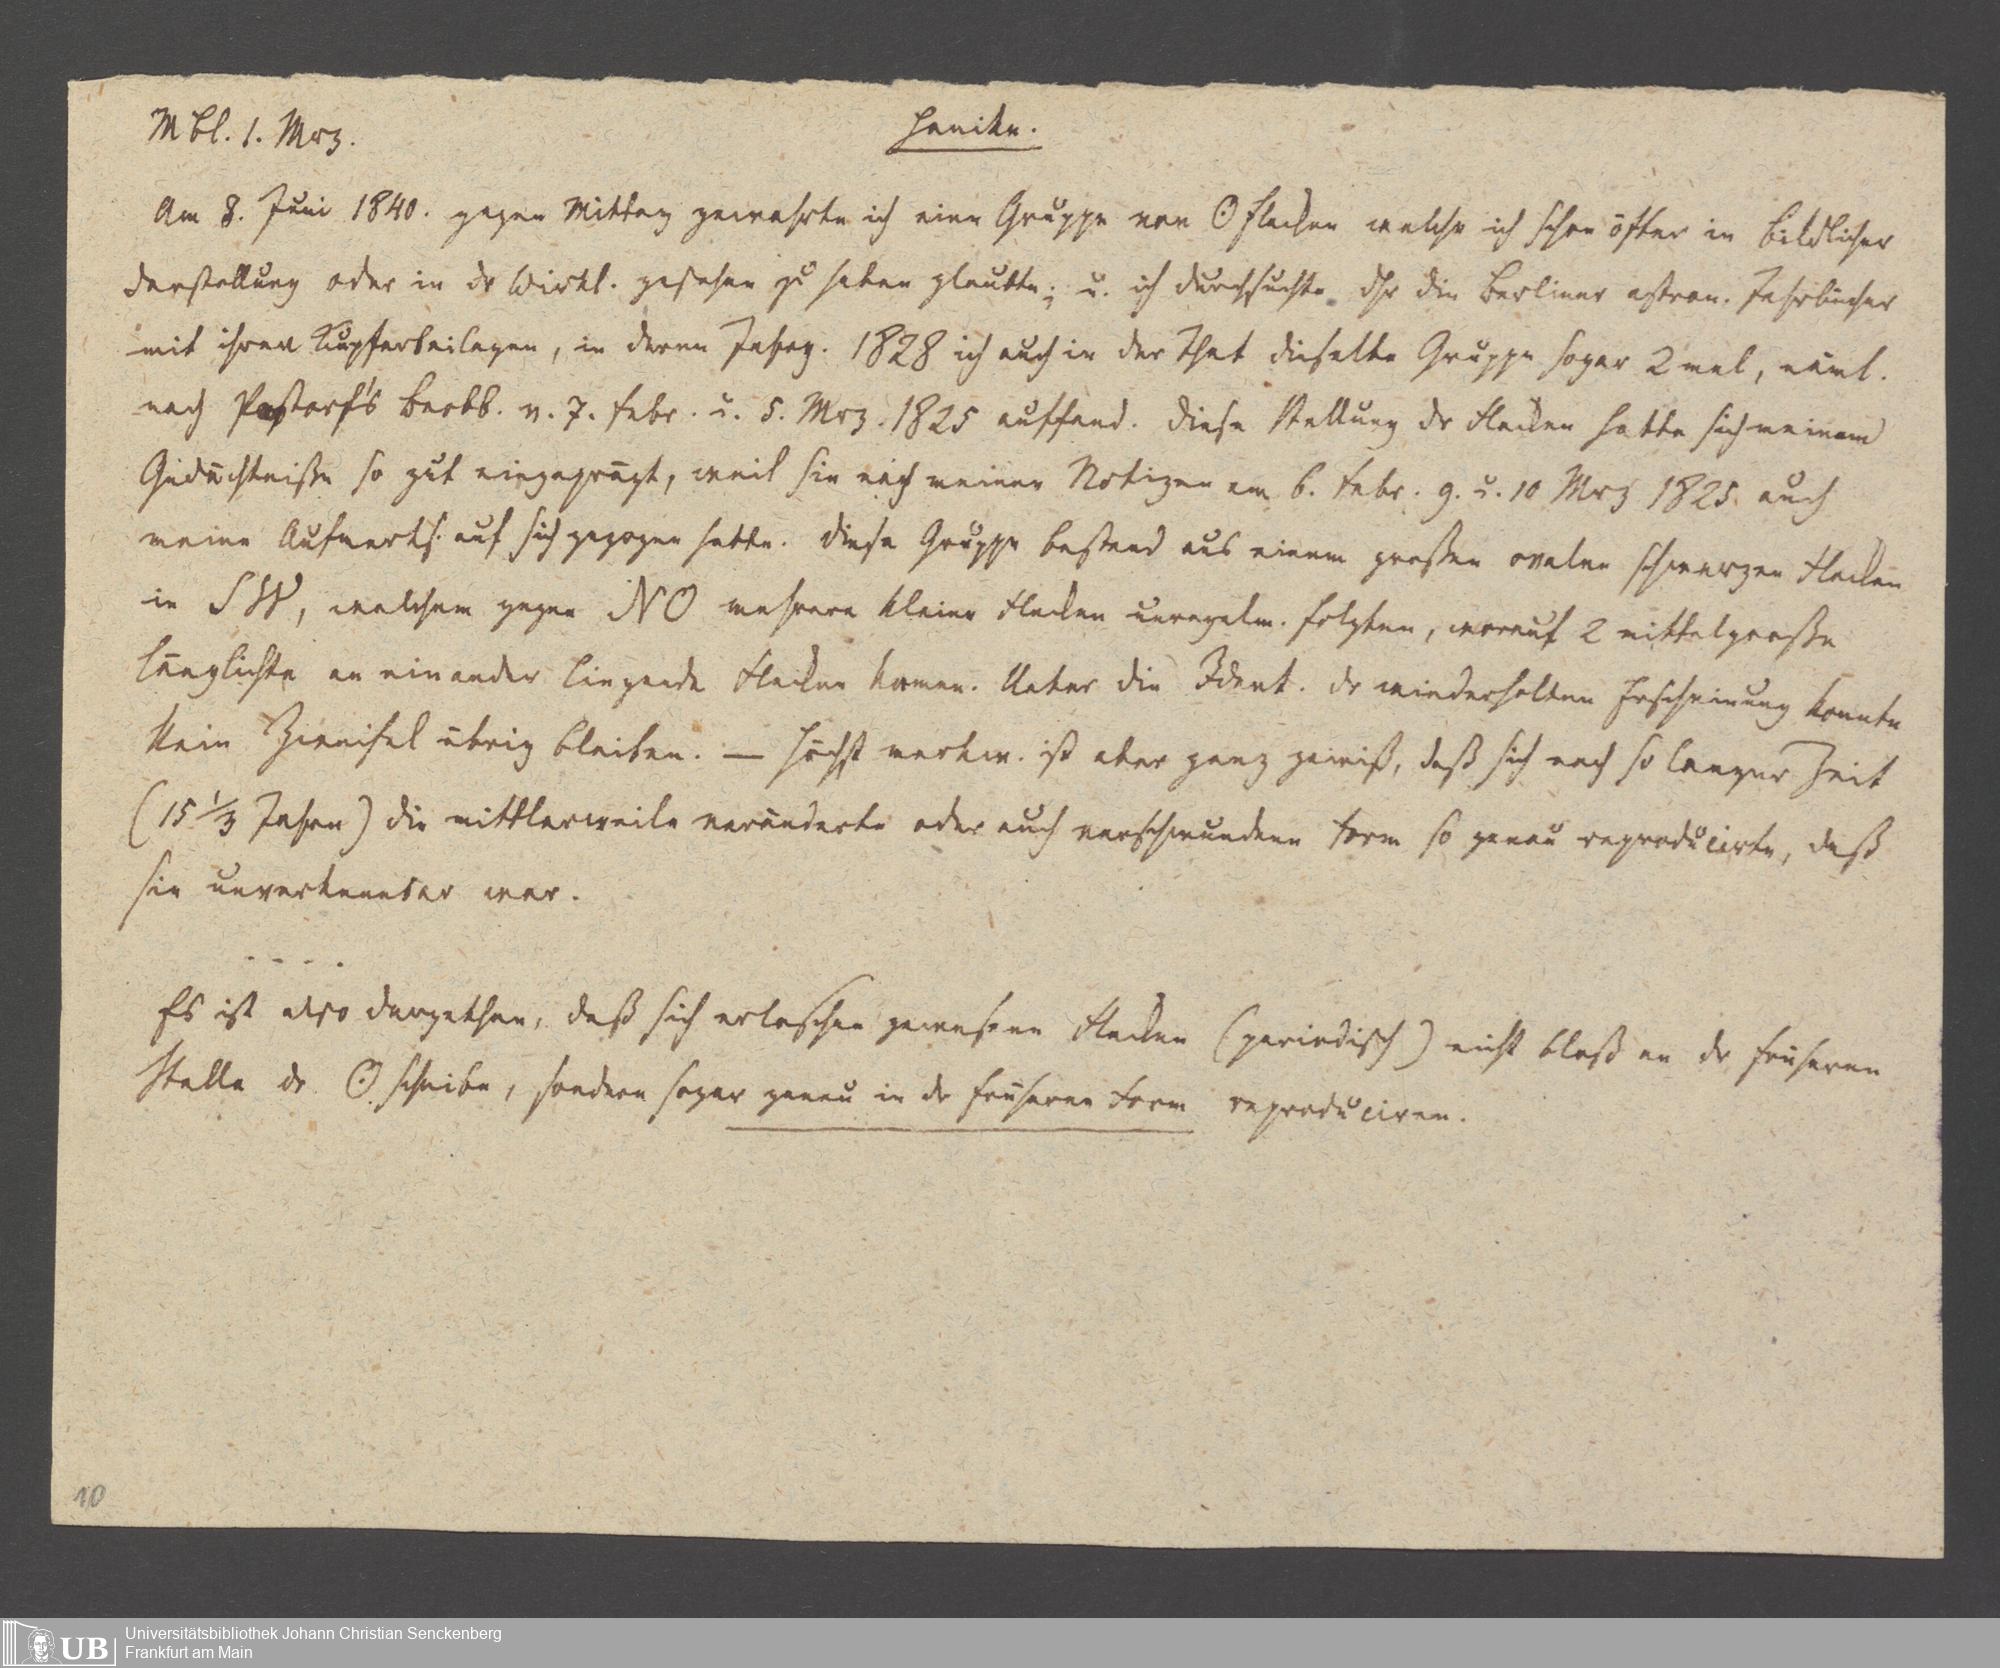 Mbl. 1. Mrz.
Hencke.
Am 8. Juni 1840. gegen Mittag gewahrte ich eine Gruppe von ⊙flecken welche ich schon öfter in bildlicher
Darstellung oder in dr Wirkl. gesehen zu haben glaubte; u. ich durchsuchte dhr die Berliner astron. Jahrbücher
mit ihren Kupferbeilagen, in deren Jahrg. 1828 ich auch in der That dieselbe Gruppe sogar 2 mal, näml.
nach Pastorf's Beobb. v. 7. Febr. u. 5. Mrz. 1825 auffand. Diese Stellung dr Flecken hatte sich meinem
Gedächtniße so gut eingeprägt, weil sie nach meinen Notizen am 6. Febr. 9. u. 10 Mrz 1825 auch
meine Aufmerks. auf sich gezogen hatte. Diese Gruppe bestand aus einem großen ovalen schwarzen Flecken
in SW, welchem gegen NO mehrere kleine Flecken unregelm. folgten, worauf 2 mittelgroße
länglichte an einander liegende Flecken kamen. Ueber die Ident. dr wiederholten Erscheinung konnte
kein Zweifel übrig bleiben. — Höchst merkw. ist aber ganz gewiß, daß sich nach so langer Zeit
(15 1/3 Jahre) die mittlerweile veränderte oder auch verschwundene Form so genau reproducirte, daß
sie unverkennbar war.
- - - -
Es ist also dargethan, daß sich erloschen gewesene Flecken (periodisch) nicht bloß an dr früheren
Stelle dr ⊙scheibe, sondern sogar genau in dr früheren Form reproduciren.
10
UB
Universitätsbibliothek Johann Christian Senckenberg
Frankfurt am Main